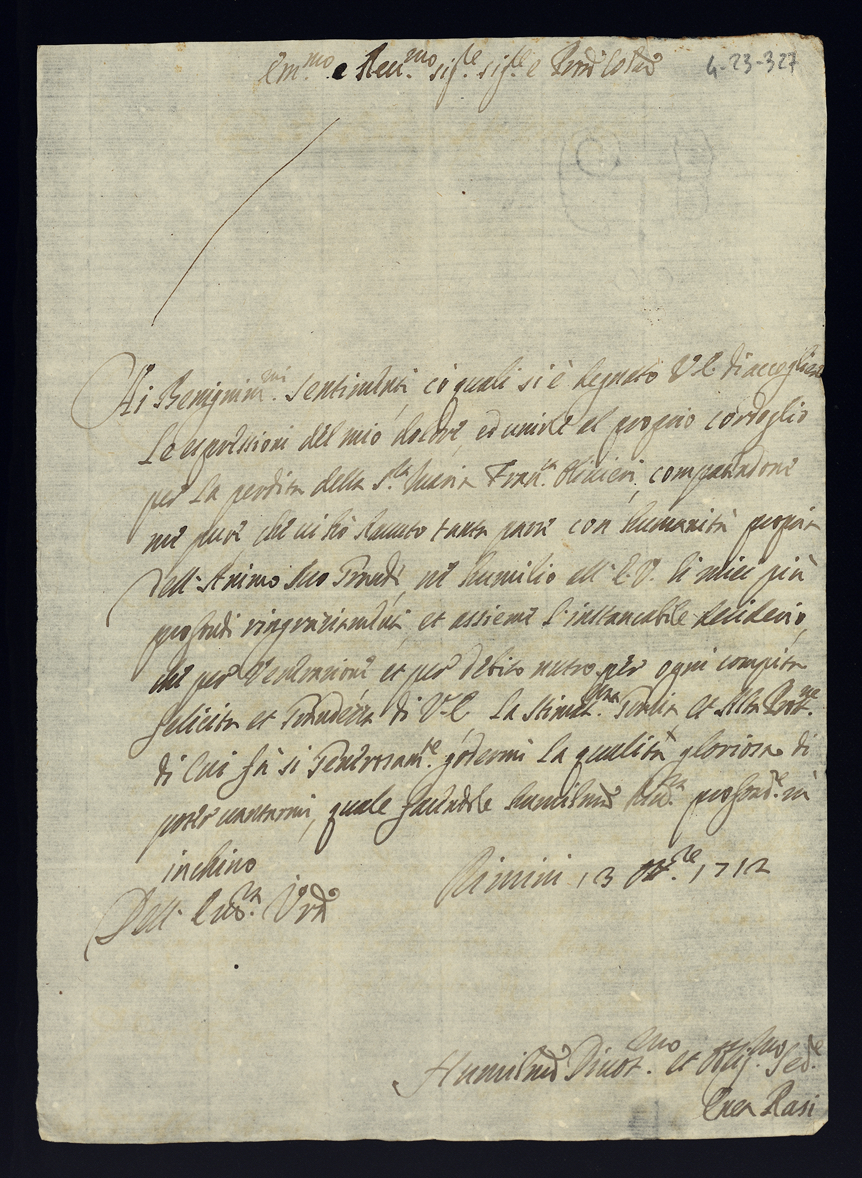 Em.mo e Reu.mo sig.re sig.re e Prõn Colmõ
4-23-327
Ai Benignis.mi sentimenti, co quali si è degnato V.E. di accogliere
le espressioni del mio dolore, ed unirle al proprio cordoglio
per la perdita della S.ra Maria Fran.ca Oliuieri,
me pure che ui hò hauuto tanta parte con humanità propria
dell'Animo suo Grande, ne humilio all'E.V. li miei più
profondi ringratiamenti, et assieme l'instancabile desiderio,
che per Venerazione et per debito nutro per ogni compita
felicita et Grandezza di V.E. La stimat.ma Gratia et Alta Prot.ne
di lui fà si Generosam.te godermi la qualità gloriosa di
poter uantarmi, quale facendole profond.e in
inchino
Rimini 13 1712
Dell' Em.za Vrã
Humilmõ Diuot.mo et Obblig.mo Ser.e
Rasi